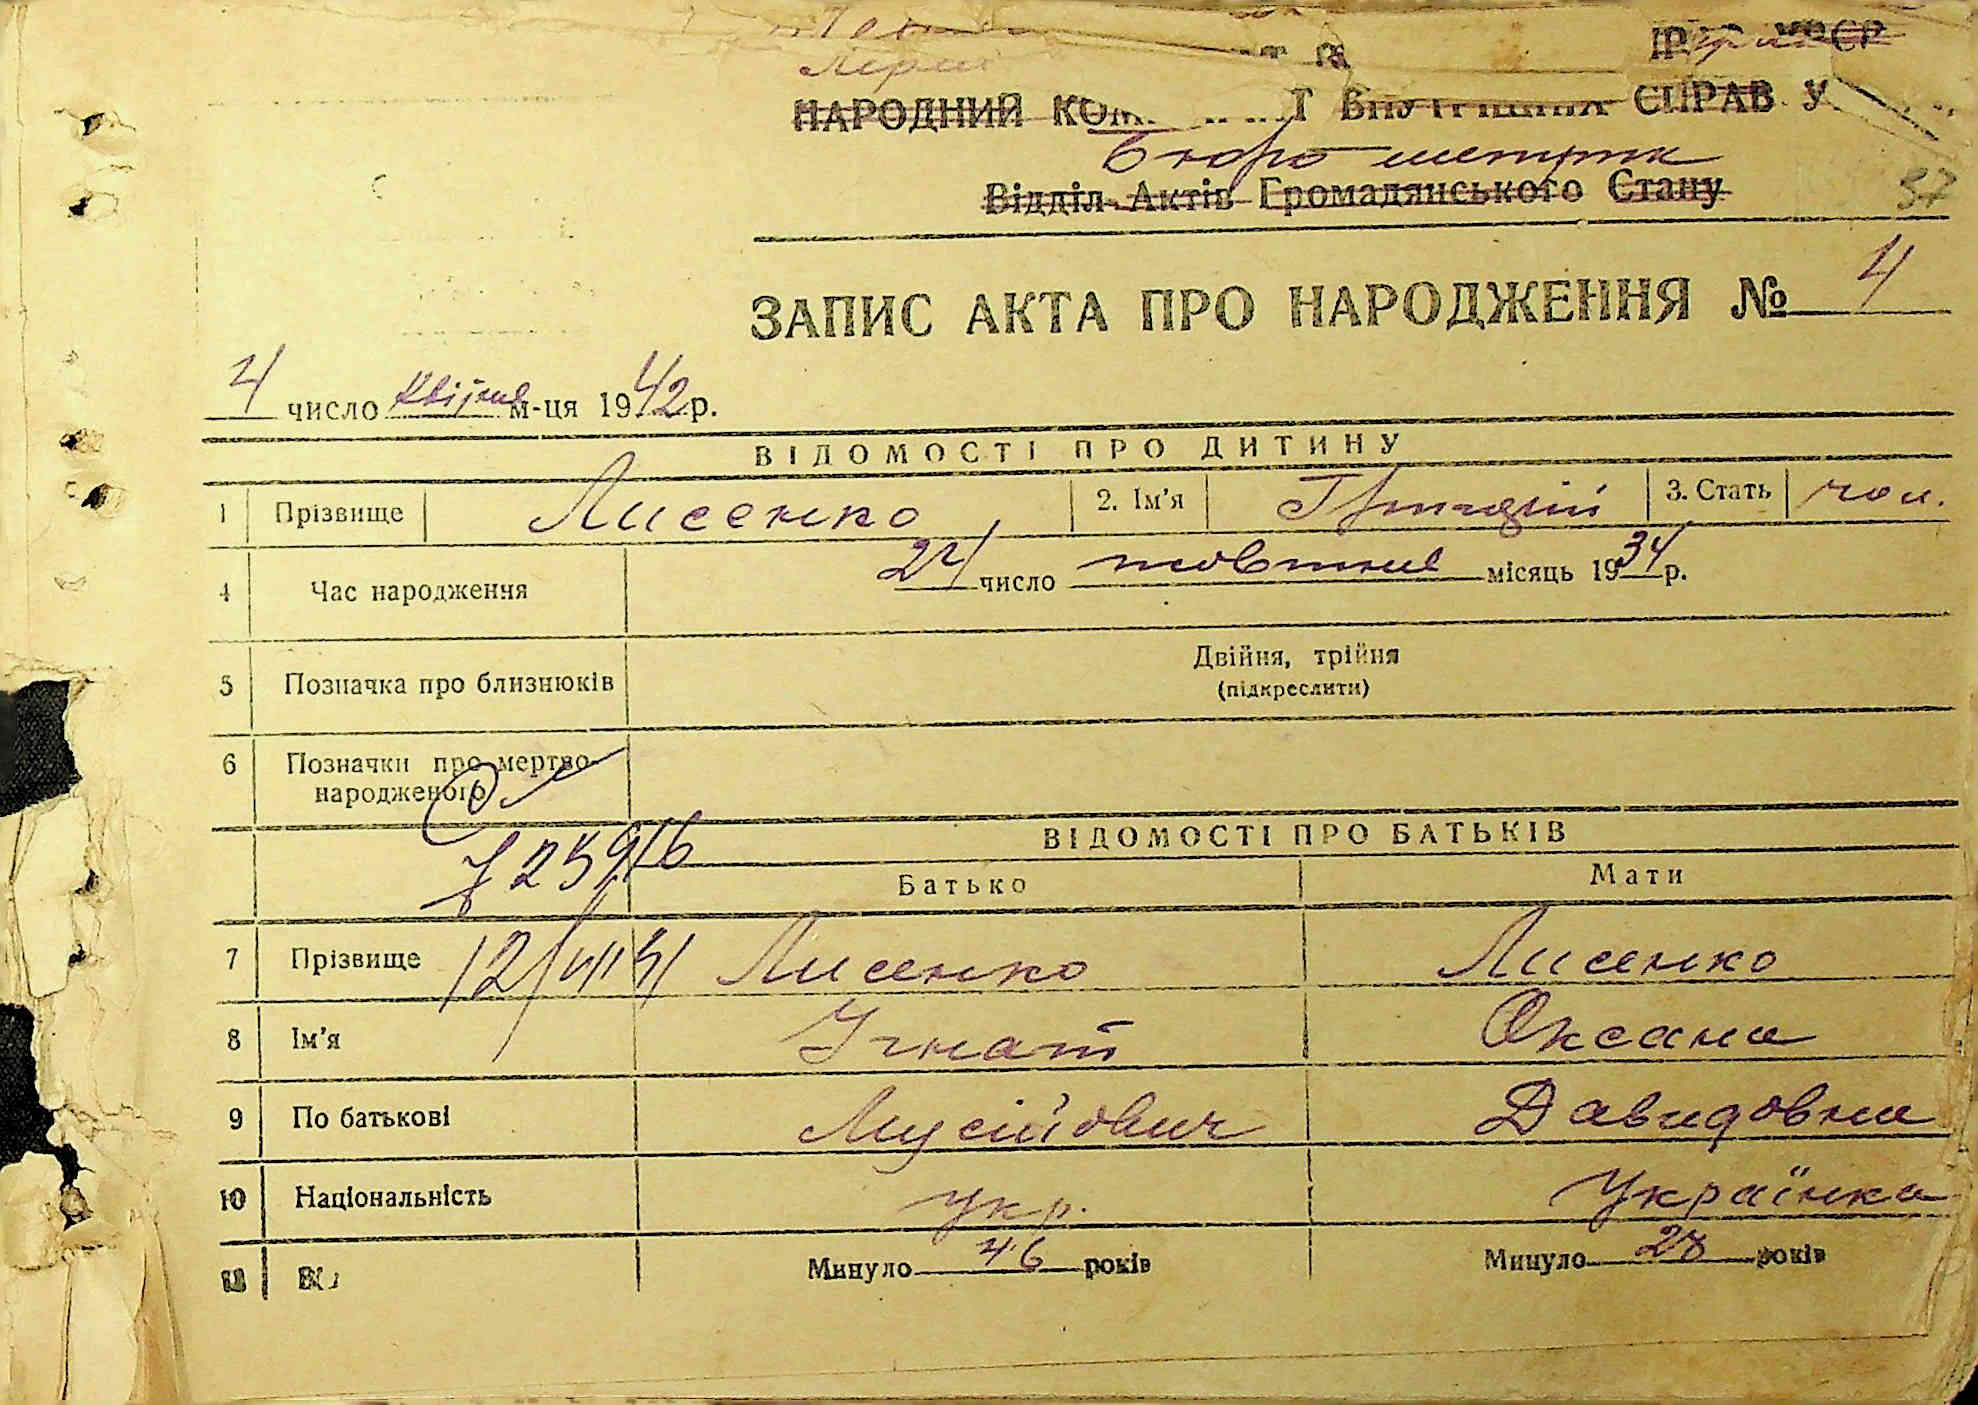 НАРОДНИЙ СПРАВ У
Бюро метрик
Відділ Актів Громадянського Стану
37
ЗАПИС АКТА ПРО НАРОДЖЕННЯ № 4
4 число квітня м-ця 1942 р.
ВІДОМОСТІ ПРО ДИТИНУ
1 Прізвище Лисенко 2. Ім'я Григорій 3. Стать чол.
4 Час народження 24 число жовтня місяць 1934 р.
5 Позначка про близнюків Двійня, трійня
(підкреслити)
6 Позначки про мертво-
народженого
ВІДОМОСТІ ПРО БАТЬКІВ
Батько Мати
7 Прізвище Лисенко Лисенко
8 Ім'я Ігнат Оксана
9 По батькові Мусійович Давидовна
10 Національність укр. Українка
11 Минуло 46 років Минуло 28 років